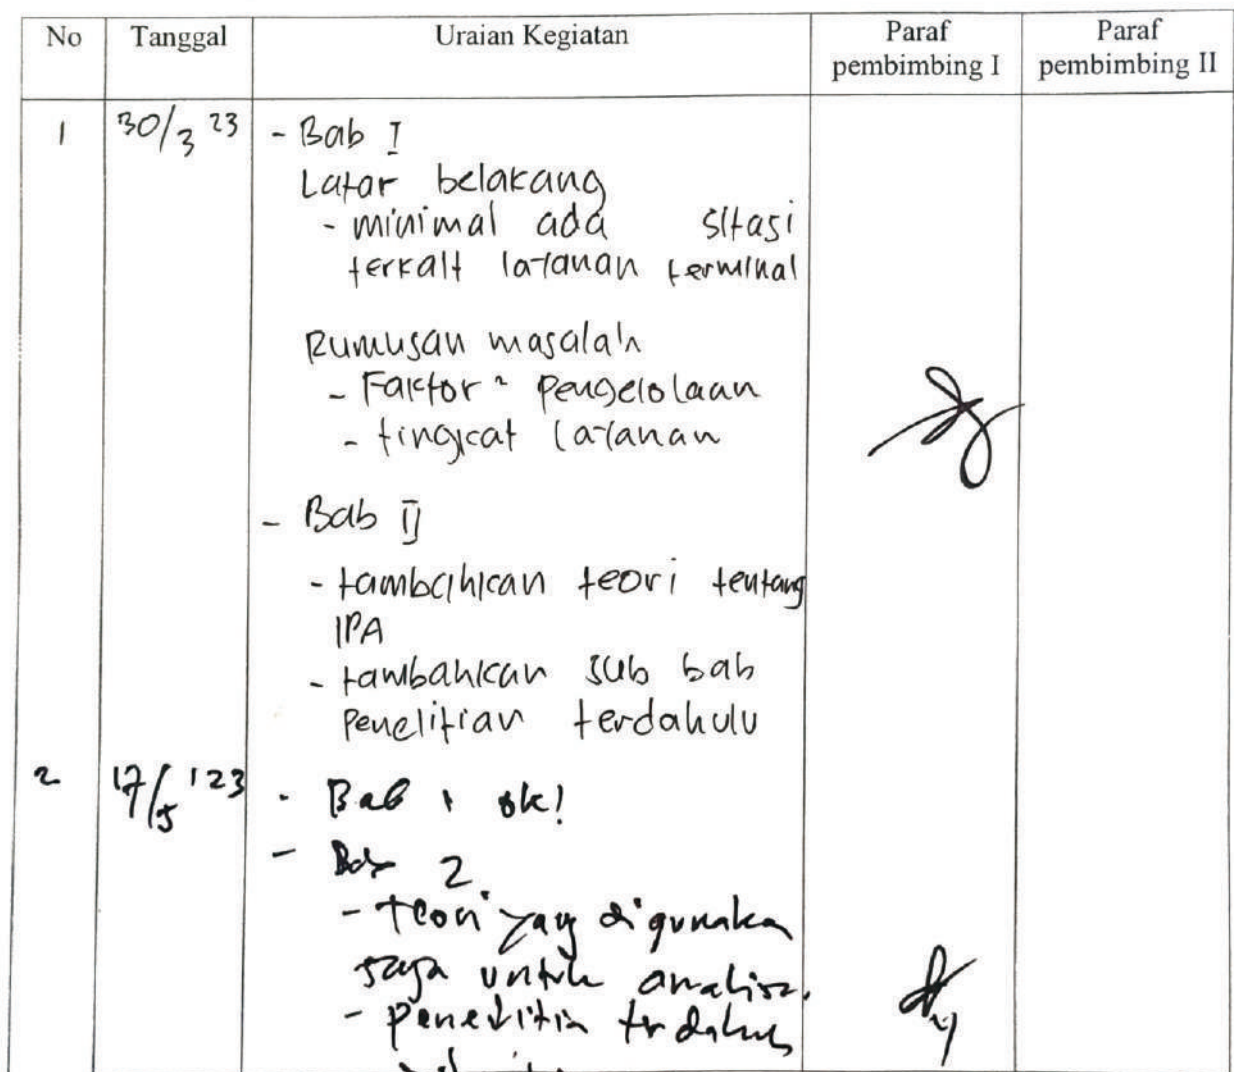 No Tanggal Uraian Kegiatan Paraf pembimbing I Paraf pembimbing II
1 30/3 23 - Bab I
Latar belakang
- minimal ada sitasi
terkait layanan terminal
Rumusan masalah
- Faktor² pengelolaan
- tingkat layanan
- Bab II
- tambahkan teori tentang
IPA
- tambahkan sub bab
penelitian terdahulu
2 17/5 '23 - Bab 1 ok!
- Bab 2.
- teori yang digunaka
saja untuk analisa.
- penelitia terdahulu